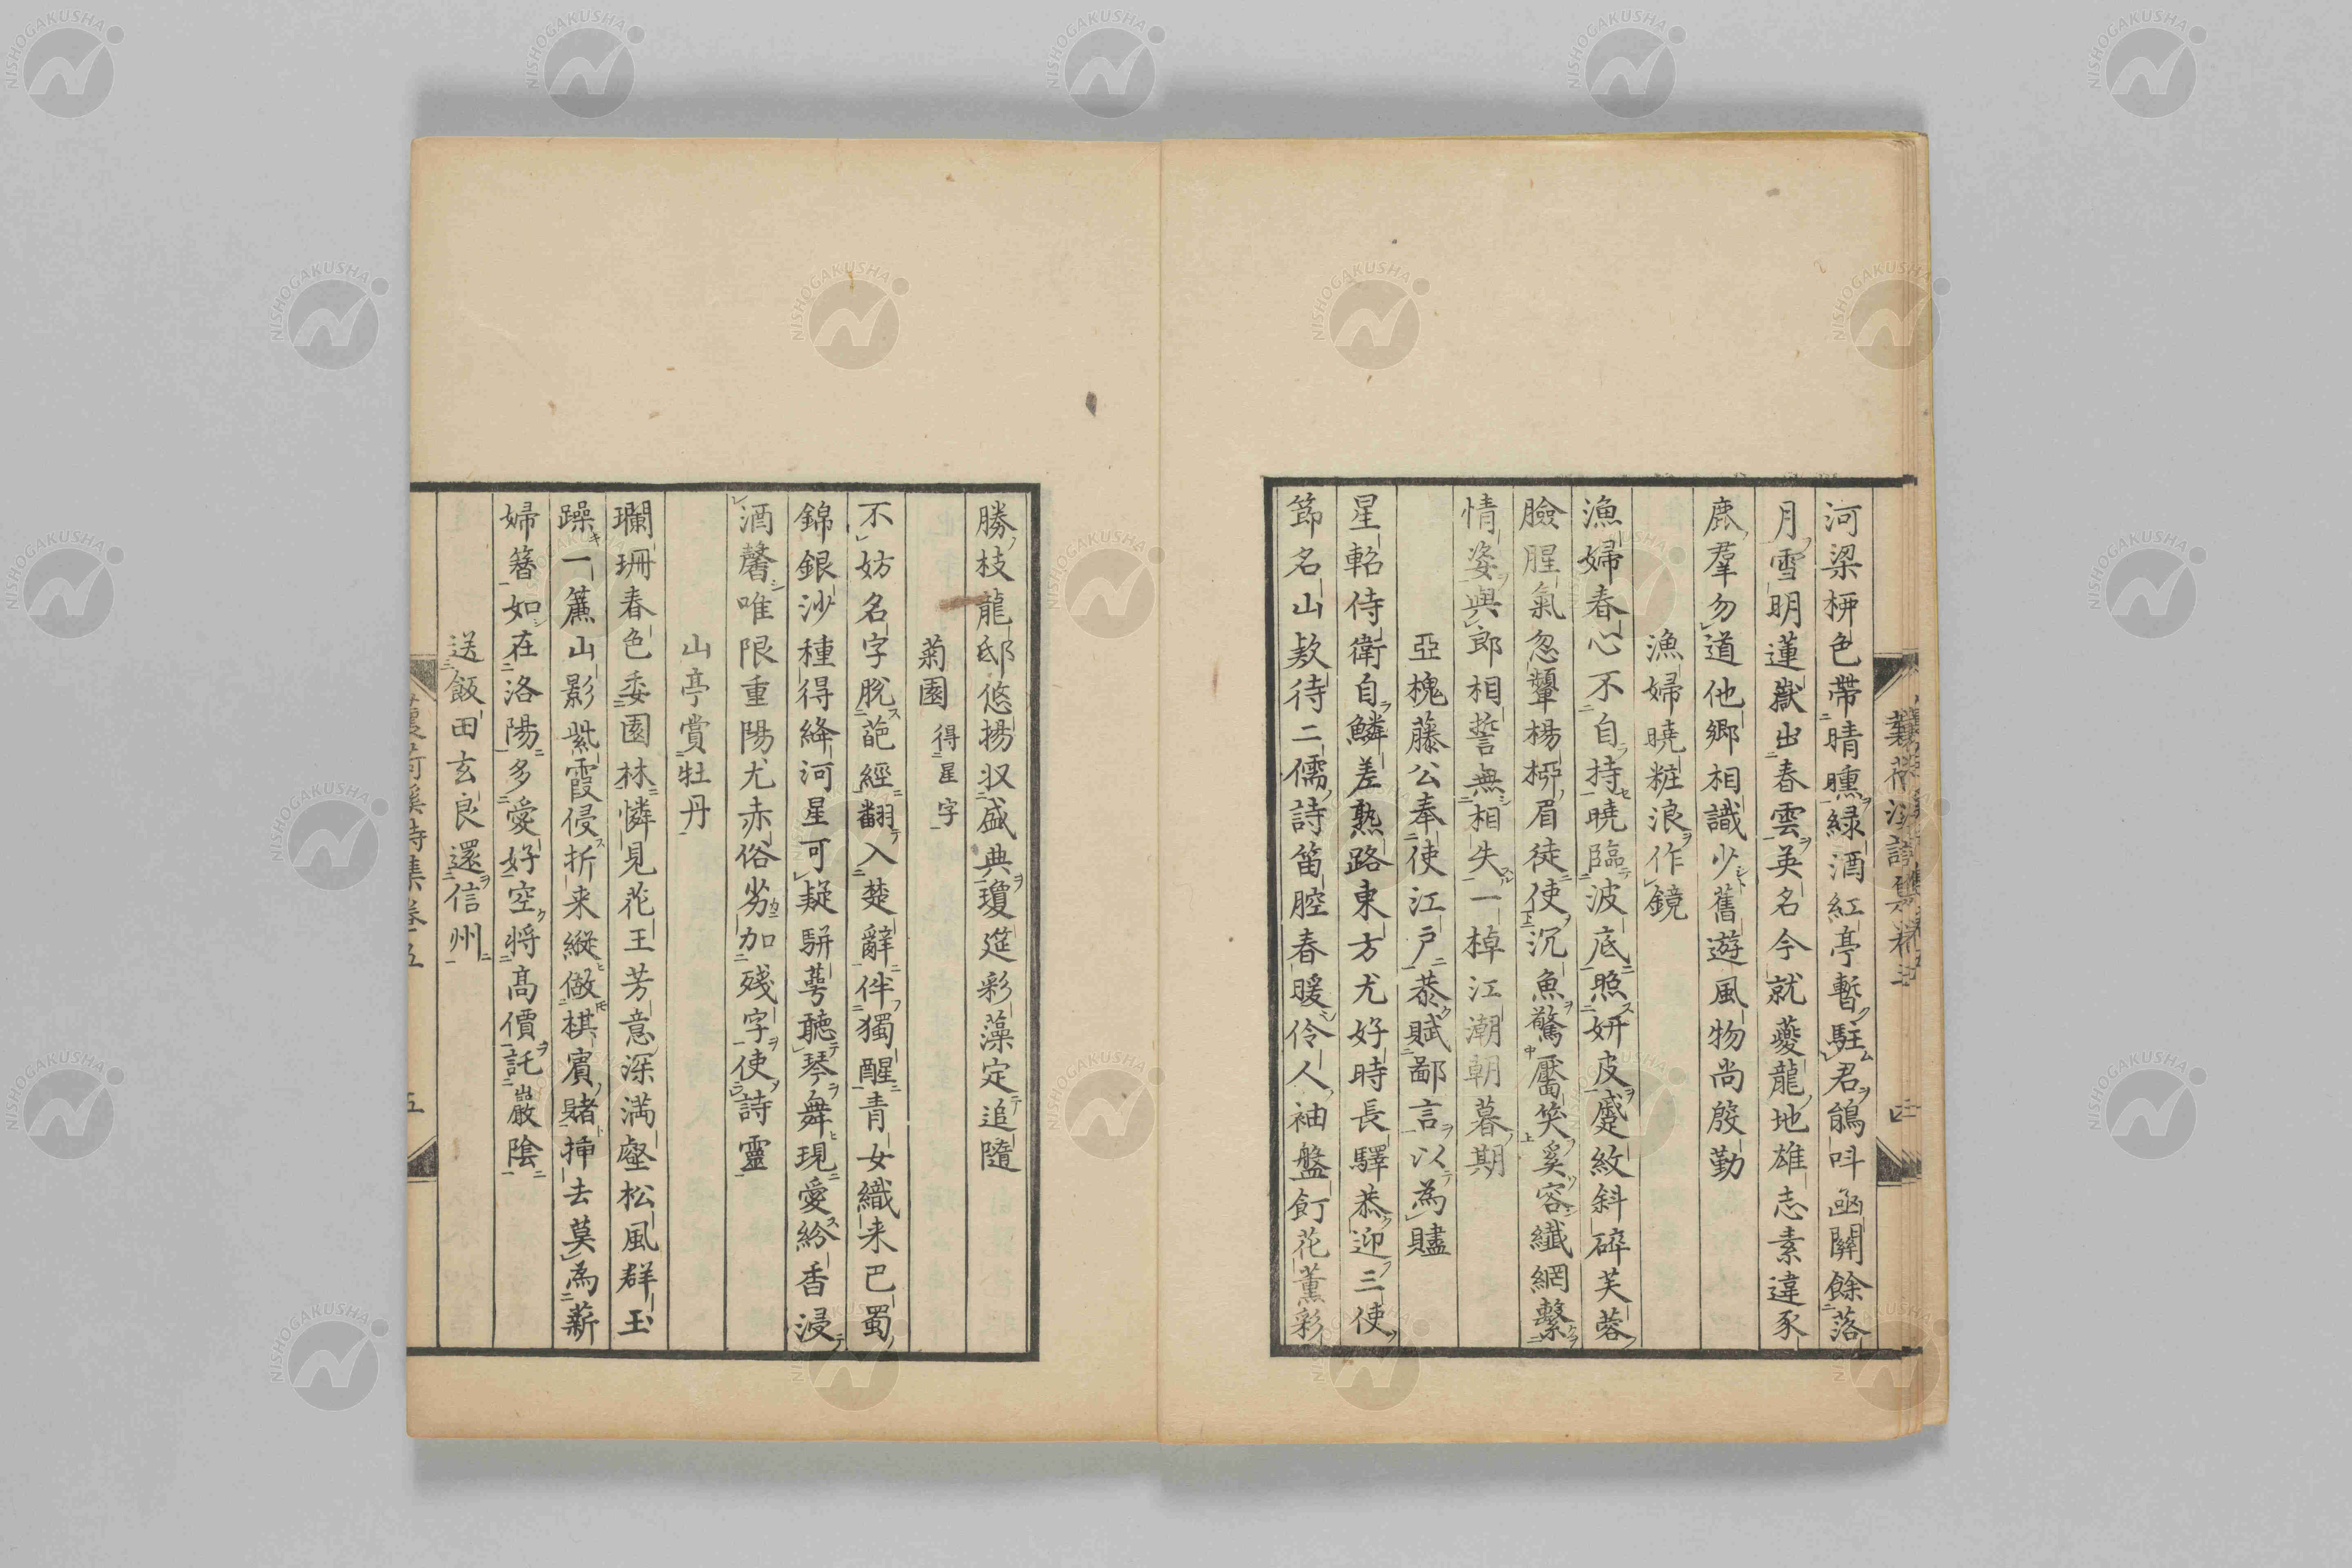 河梁柳色帶晴曛緑酒紅亭暫駐君鴿呌函關餘落
月雪明蓮嶽出春雲英名今就夔龍地雄志素違豕
鹿羣勿道他鄉相識少舊遊風物尚殷勤
漁婦曉粧浪作鏡
漁婦春心不自持曉臨波底照妍皮蹙紋斜碎芙蓉
臉腥氣忽顰楊柳眉徒使沉魚驚靨笑奚容纎網繋
情姿與郎相誓無相失一棹江潮朝暮期
亞槐藤公奉使江戸恭賦鄙言以為贐
星軺侍衛自鱗差熟路東方尤好時長驛恭迎三使
節名山欵待二儒詩笛腔春暖伶人袖盤飣花薫彩
勝枝龍邸悠揚収盛典瓊筵彩藻定追隨
菊園 得星字
不妨名字脫葩經翻入楚辭伴獨醒青女織来巴蜀
錦銀沙種得絳河星可疑駢萼聽琴舞現愛紛香浸
酒馨唯限重陽尤赤俗劣加殘字使詩靈
山亭賞牡丹
瓓珊春色委園林憐見花王芳意深満壑松風群玉
躁一簾山影紫霞侵折来縱倣棋賓賭挿去莫為薪
婦簪如在洛陽多愛好空将髙價託巖陰
送飯田玄良還信州
詩集卷五
五
NISHOGAKUSHA